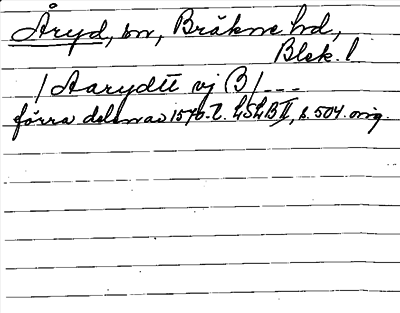 Åryd, sn, Bräkne hd,
Blek. l
/ Aarydtt vj B / ---
förra delen av 1570-t. LSLB II, s. 504. orig.